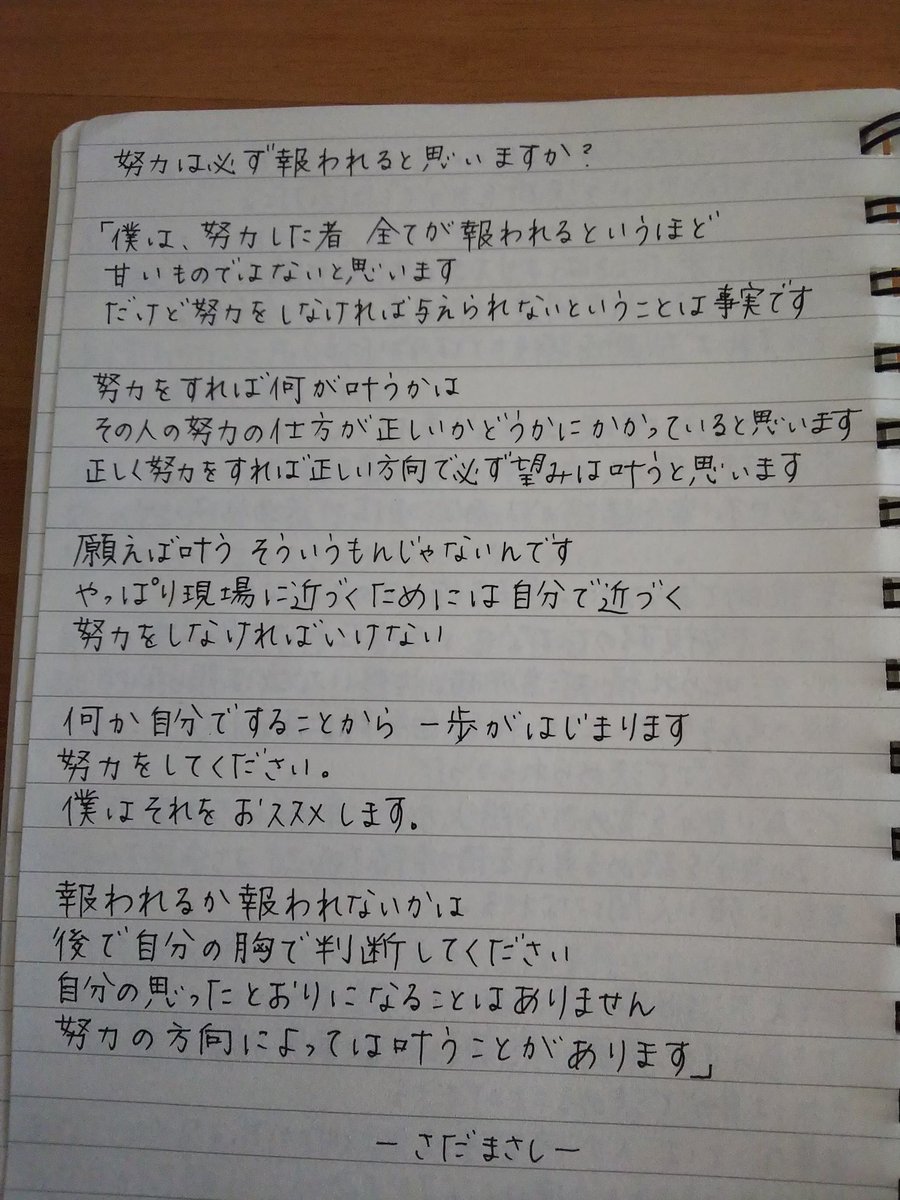 努力は必ず報われると思いますか?
「僕は、努力した者 全てが報われるというほど
甘いものではないと思います
だけど努力をしなければ与えられないということは事実です
努力をすれば何が叶うかは
その人の努力の仕方が正しいかどうかにかかっていると思います
正しく努力をすれば正しい方向で必ず望みは叶うと思います
願えば叶う そういうもんじゃないんです
やっぱり現場に近づくためには自分で近づく
努力をしなければいけない
何か自分ですることから 一歩がはじまります
努力をしてください。
僕はそれを おススメします。
報われるか報われないかは
後で自分の胸で判断してください
自分の思ったとおりになることはありません
努力の方向によっては叶うことがあります」
ーさだまさしー